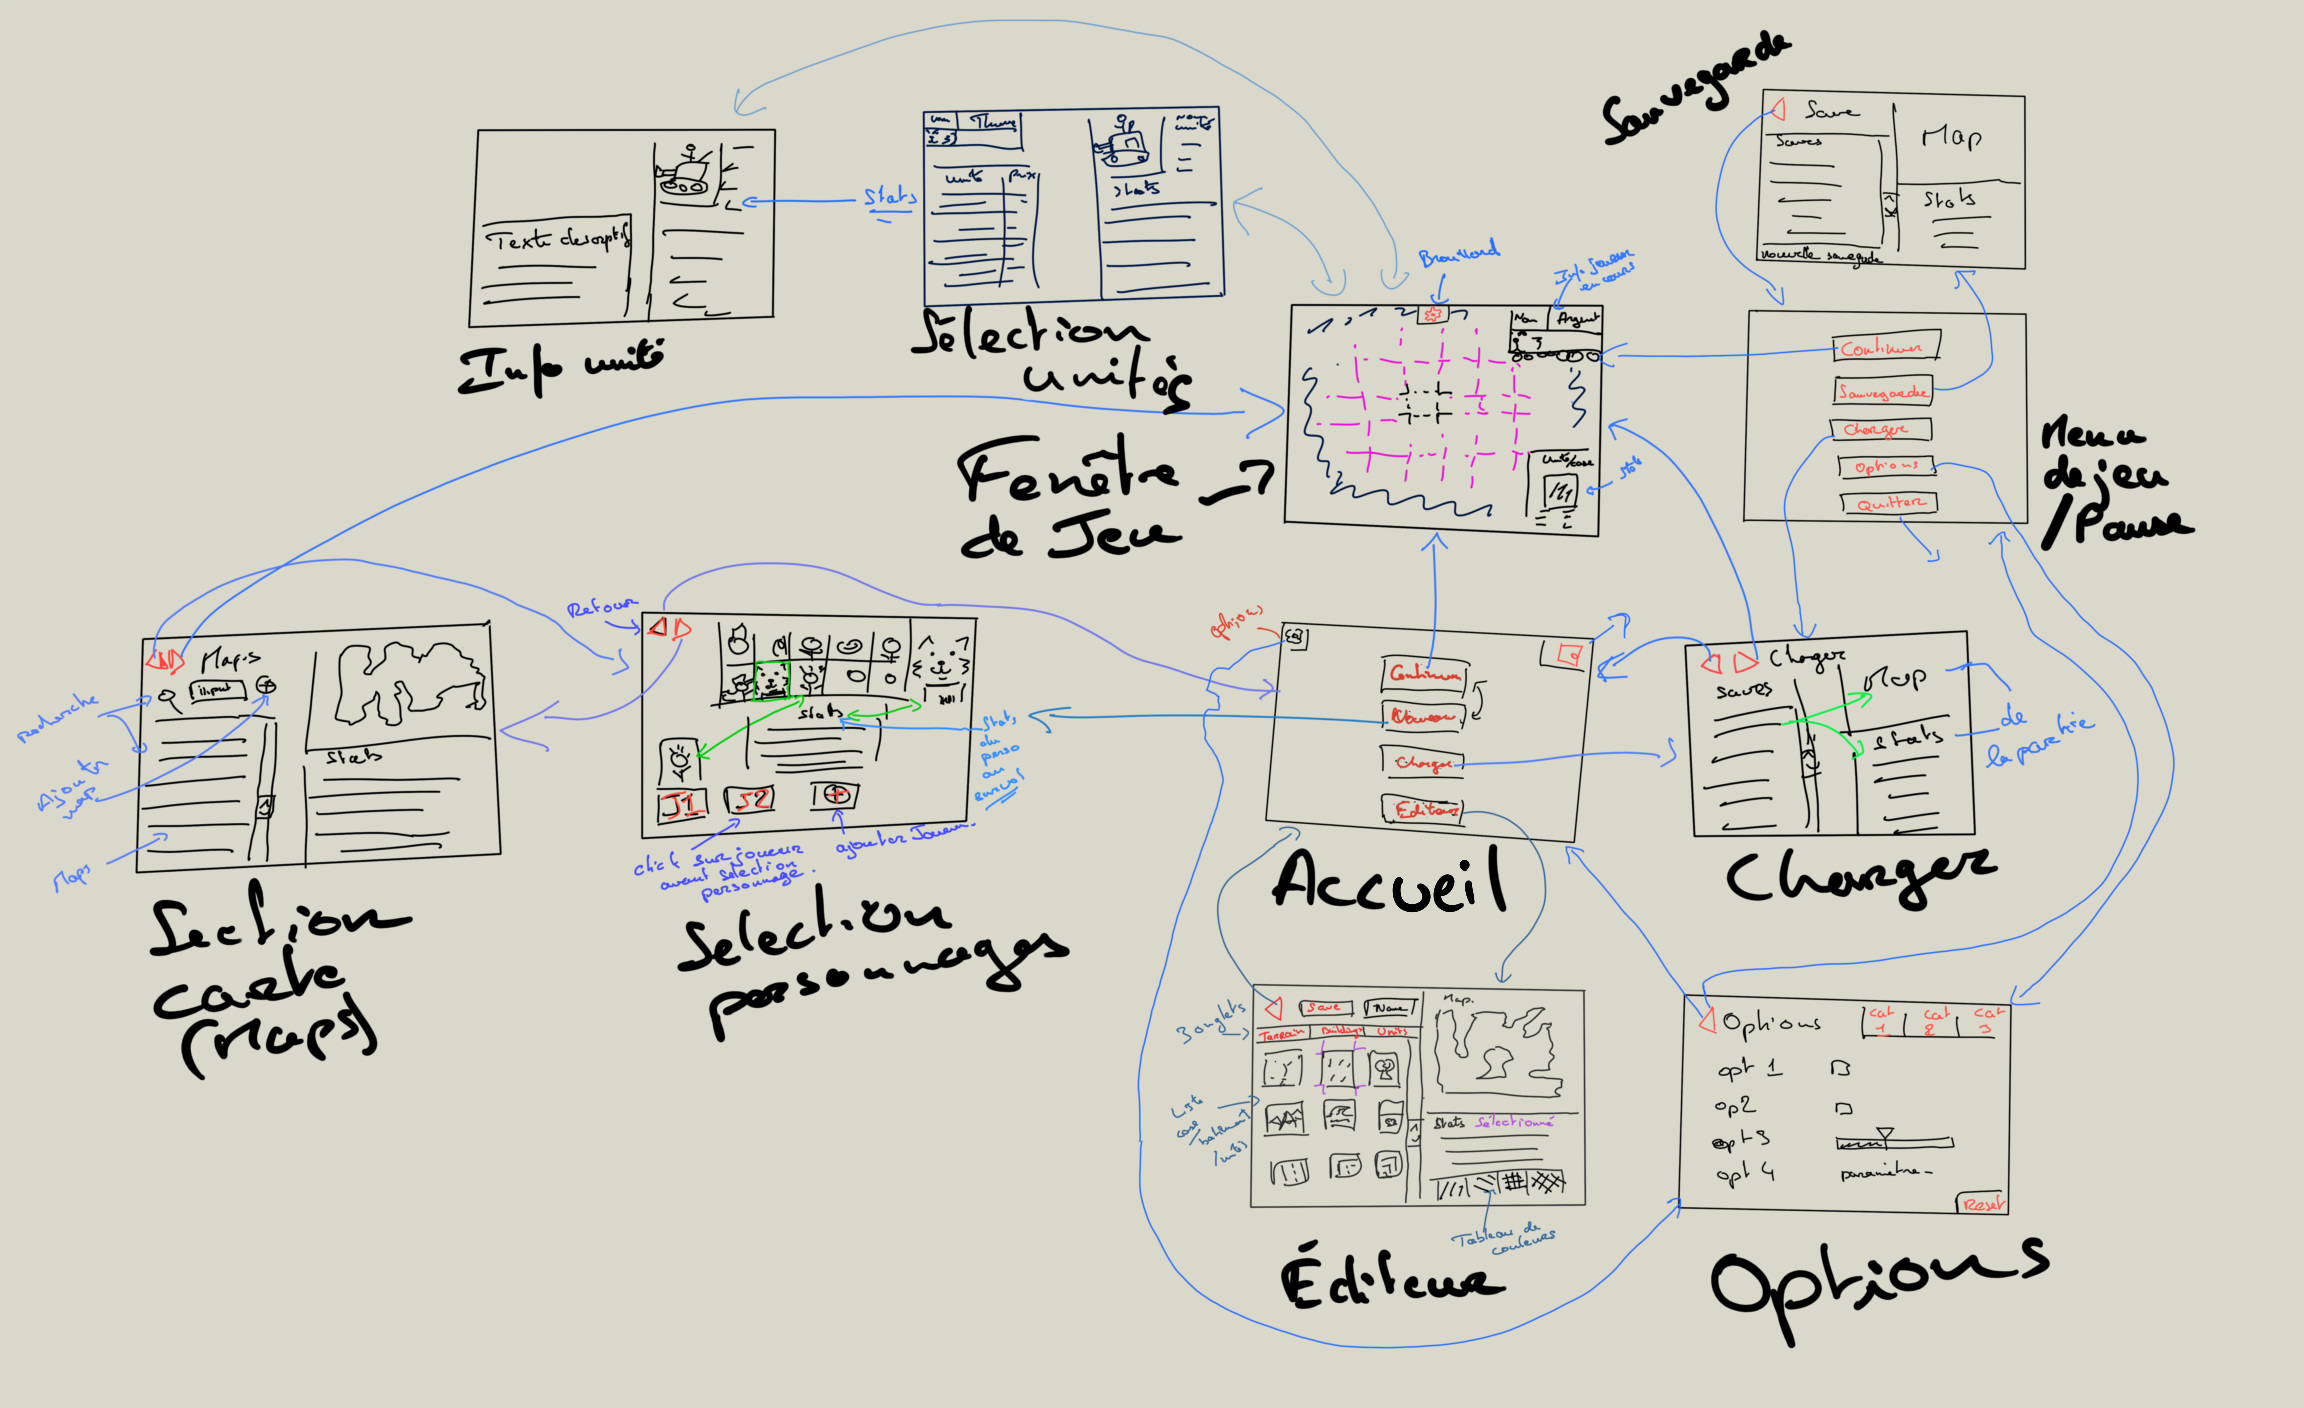 Sauvegarde
Save
Saves
Map
Stats
nouvelle sauvegarde
Texte descriptif
Info unité
Stats
Nom
Thune
J3
unité
Prix
Nom
unité
Stats
Sélection
unités
Brouillard
Info Joueur
en cours
Nom
Argent
J 3
unité/case
Stats
Fenêtre
de Jeu
Continuer
Sauvegarde
Charger
Options
Quitter
Menu
de jeu
/Pause
Maps
input
recherche
Ajouter
map
Maps
Stats
Section
carte
(Maps)
Retour
Stats
J1
J2
Stats
du
perso
au
survol
click sur joueur
avant sélection
personnage.
ajouter Joueur.
Sélection
personnages
options
Continuer
Nouveau
Charger
Editeur
?
Accueil
Charger
Saves
Map
Stats
de
la partie
Charger
3 onglets
Save
Name
Terrain
Buildings
Units
Liste
case
/batiment
/unités
Map.
Stats Sélectionné
Tableau de
couleurs
Éditeur
Options
cat
1
cat
2
cat
3
opt 1
op2
opt3
opt 4
paramètre
Reset
Options